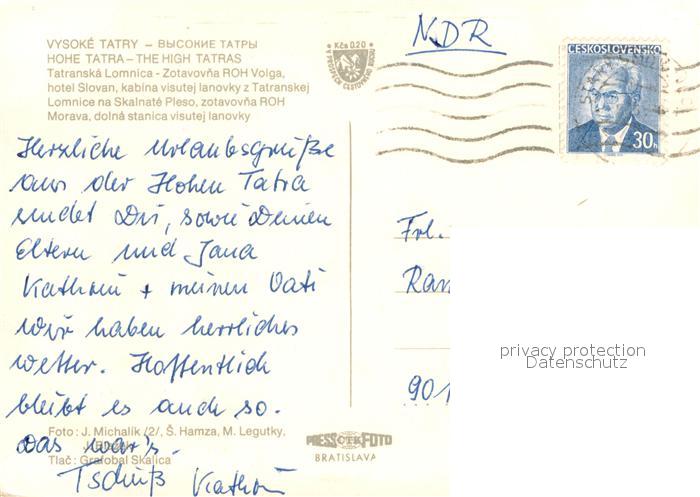 VYSOKÉ TATRY – ВЫСОКИЕ ТАТРЫ
HOHE TATRA – THE HIGH TATRAS
Tatranská Lomnica - Zotavovňa ROH Volga,
hotel Slovan, kabína visutej lanovky z Tatranskej
Lomnice na Skalnaté Pleso, zotavovňa ROH
Morava, dolná stanica visutej lanovky
Kčs 0.20
NDR
ČESKOSLOVENSKO
30h
Herzliche Urlaubsgrüße
aus der Hohen Tatra
sendet Dir, sowie Deinen
Eltern und Jana
Kathrin + meinen Vati
Wir haben herrliches
Wetter. Hoffentlich
bleibt es auch so.
Das war's.
Tschüß Kathrin
Frl.
Ran
901
privacy protection
Datenschutz
Foto: J. Michalík /2/, Š. Hamza, M. Legutky,
Tlač: Grafobal Skalica
PRESSFOTO
BRATISLAVA